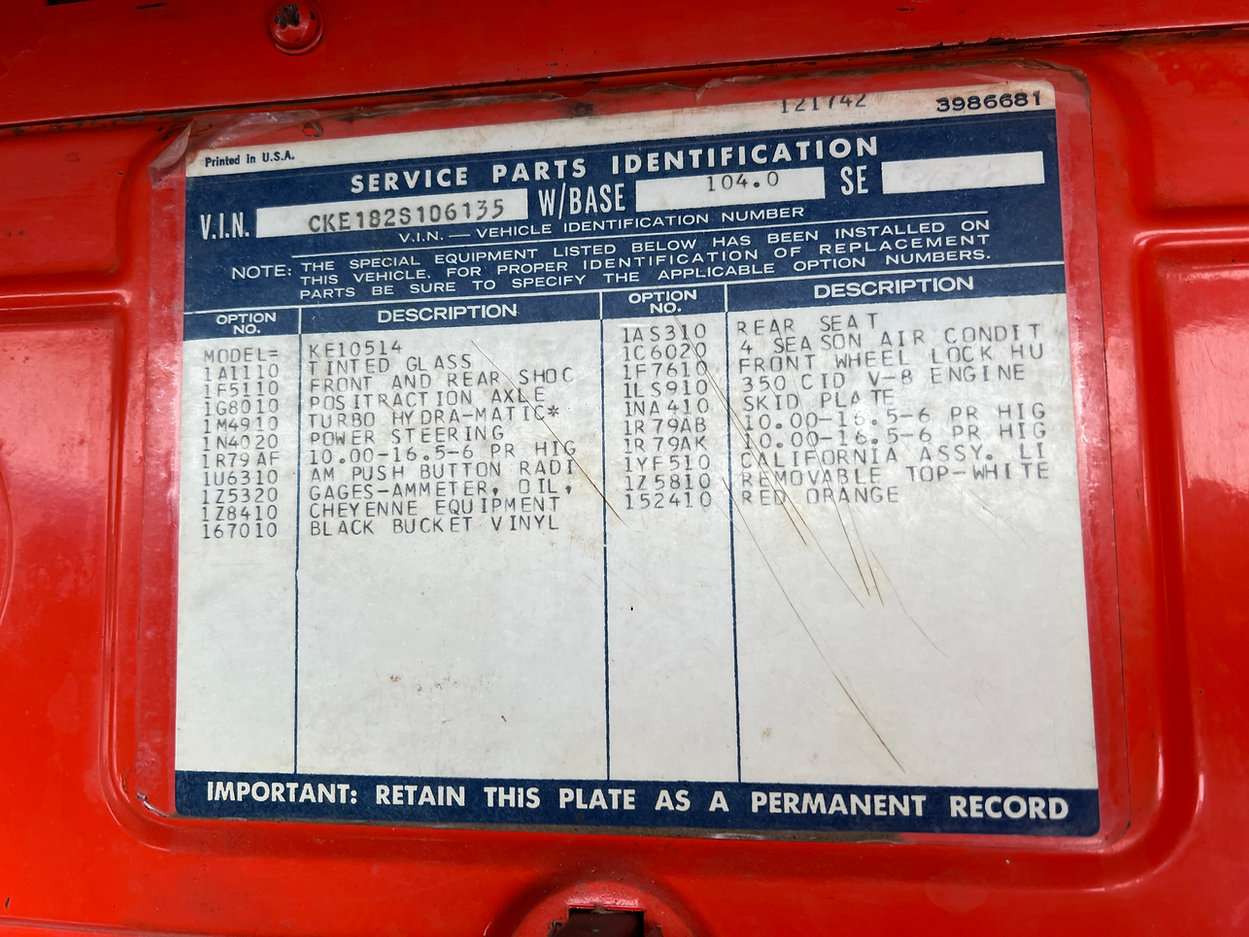 121742 3986681
Printed in U.S.A.
SERVICE PARTS IDENTIFICATION
V.I.N. CKE182S106135 W/BASE 104.0 SE
V.I.N. — VEHICLE IDENTIFICATION NUMBER
NOTE: THE SPECIAL EQUIPMENT LISTED BELOW HAS BEEN INSTALLED ON
THIS VEHICLE. FOR PROPER IDENTIFICATION OF REPLACEMENT
PARTS BE SURE TO SPECIFY THE APPLICABLE OPTION NUMBERS.
OPTION NO. DESCRIPTION
MODEL= KE10514
1A1110 TINTED GLASS
1F5110 FRONT AND REAR SHOC
1G8010 POSITRACTION AXLE
1M4910 TURBO HYDRA-MATIC*
1N4020 POWER STEERING
1R79AF 10.00-16.5-6 PR HIG
1U6310 AM PUSH BUTTON RADI
1Z5320 GAGES-AMMETER, OIL,
1Z8410 CHEYENNE EQUIPMENT
167010 BLACK BUCKET VINYL
OPTION NO. DESCRIPTION
1AS310 REAR SEAT
1C6020 4 SEASON AIR CONDIT
1F7610 FRONT WHEEL LOCK HU
1LS910 350 CID V-8 ENGINE
1NA410 SKID PLATE
1R79AB 10.00-16.5-6 PR HIG
1R79AK 10.00-16.5-6 PR HIG
1YF510 CALIFORNIA ASSY. LI
1Z5810 REMOVABLE TOP-WHITE
152410 RED ORANGE
IMPORTANT: RETAIN THIS PLATE AS A PERMANENT RECORD